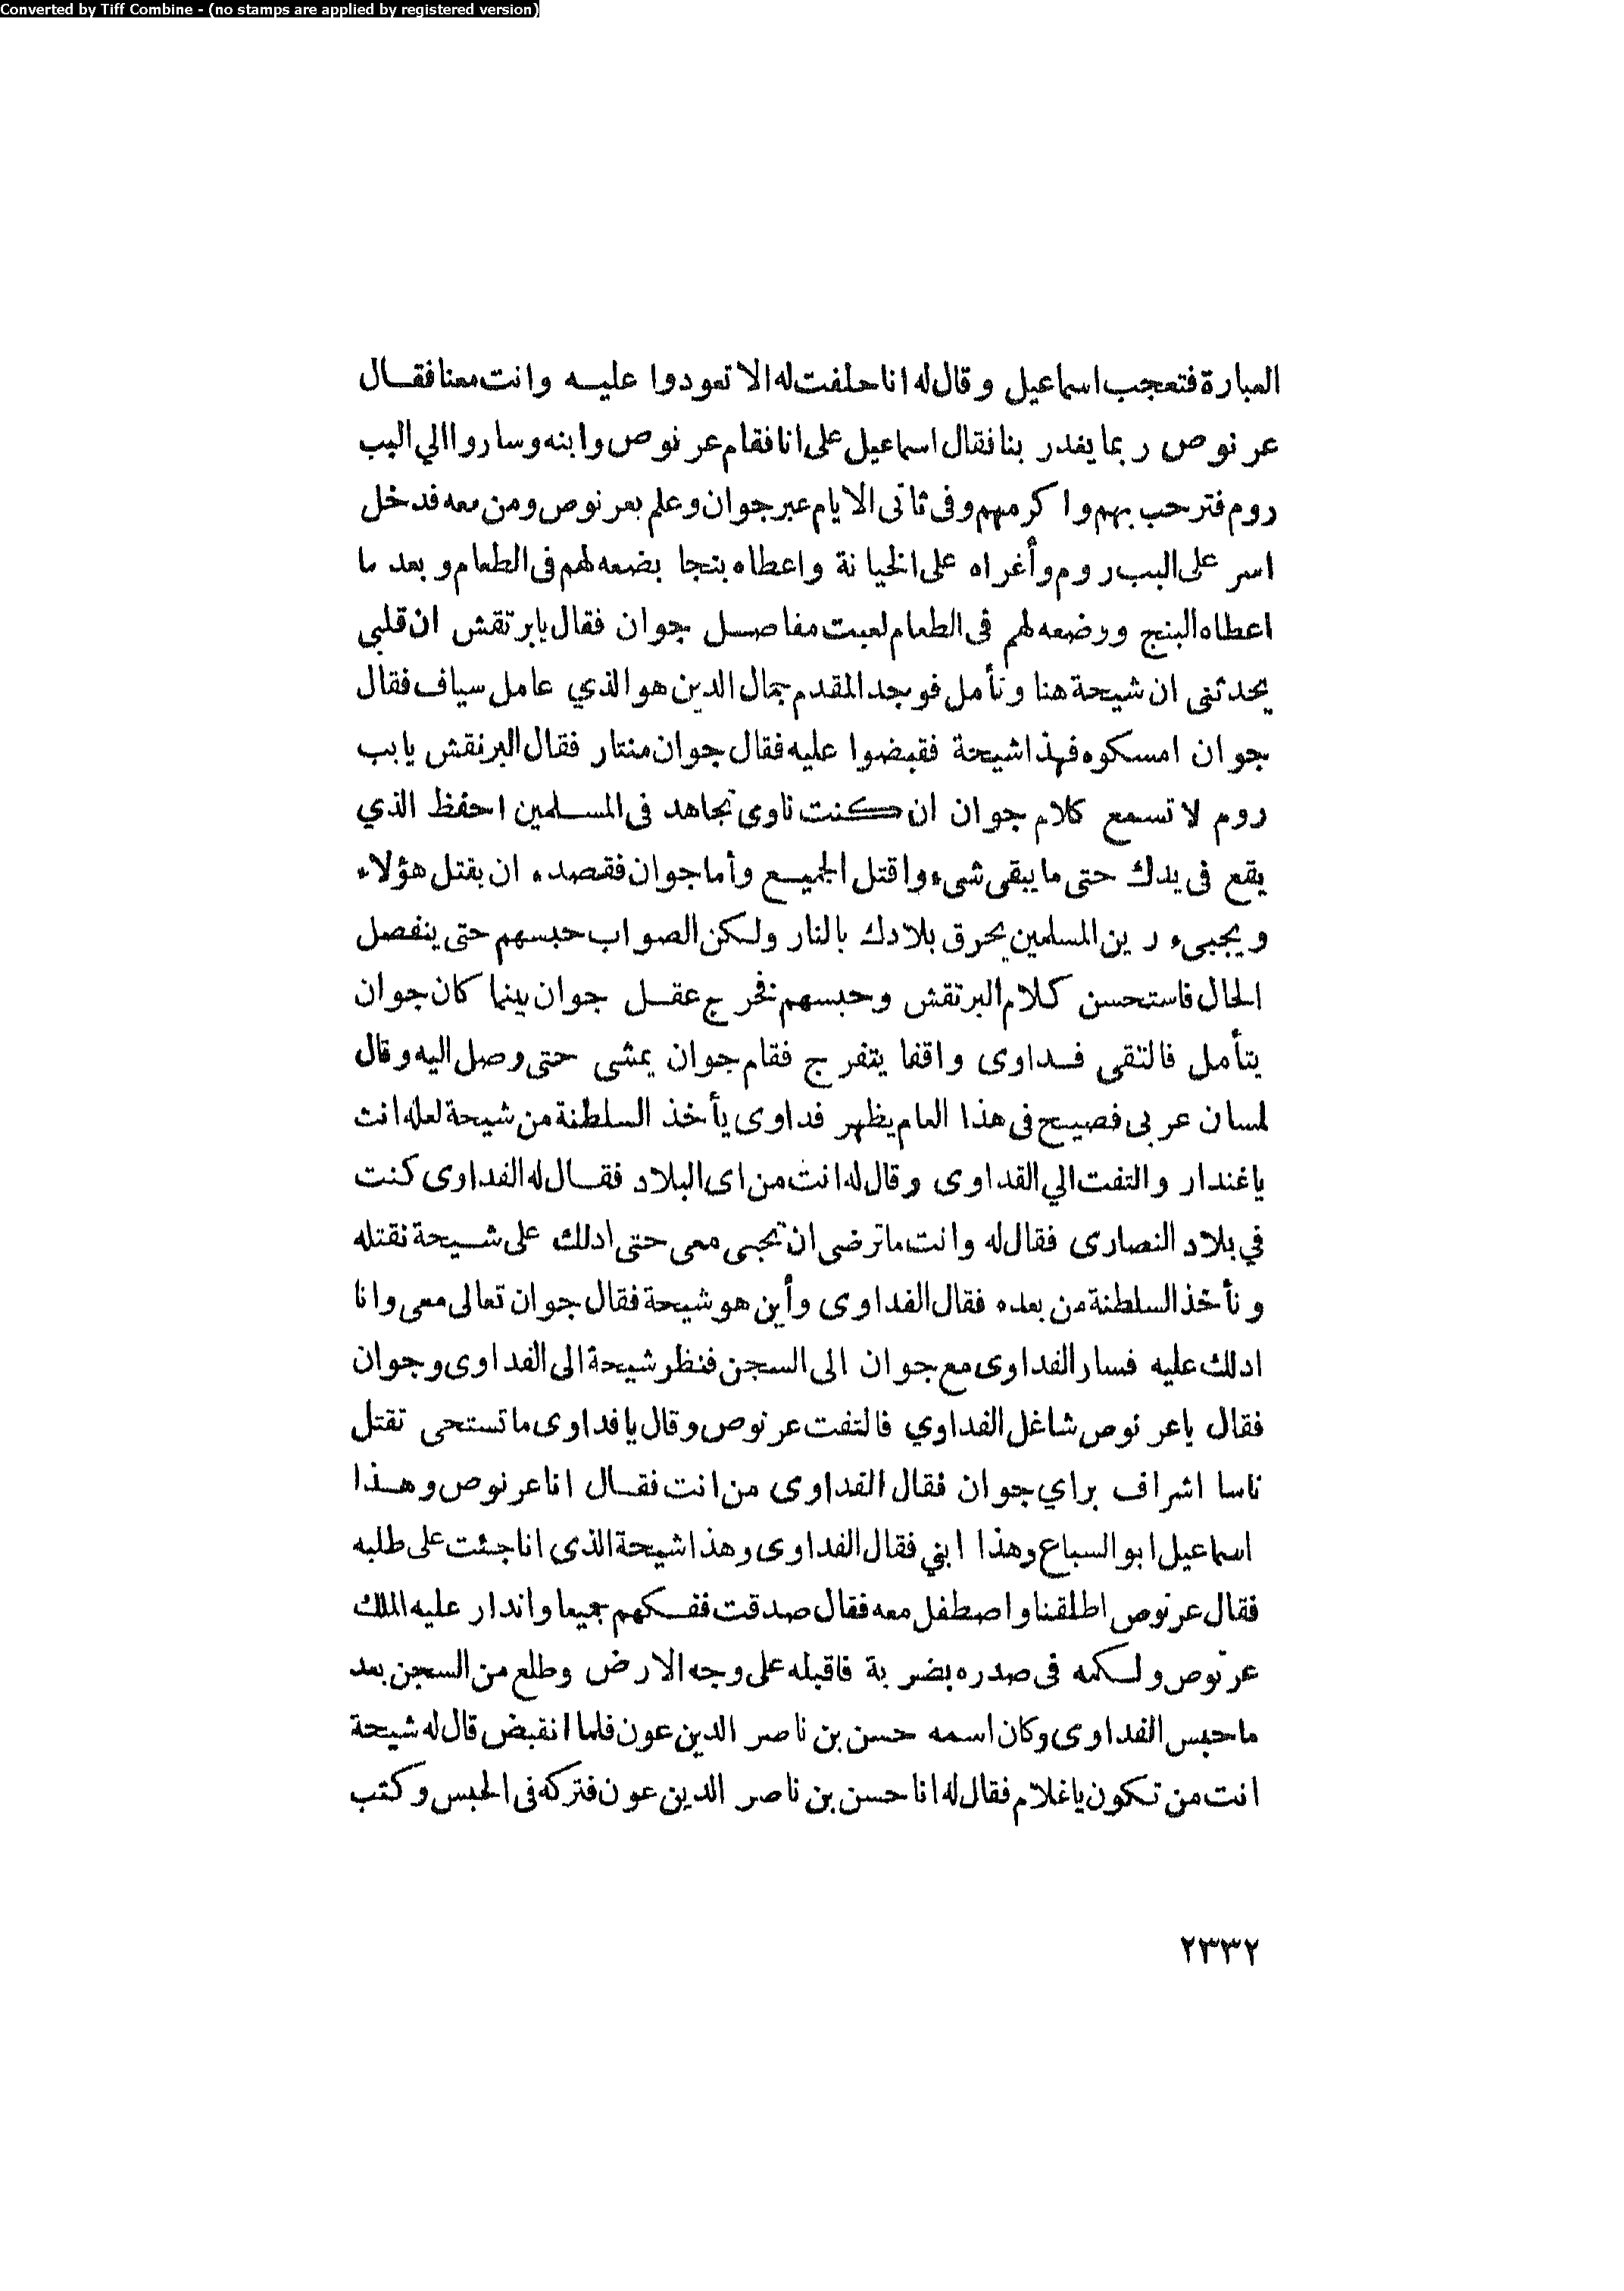 Converted by Tiff Combine - (no stamps are applied by registered version)
العبارة فتعجب اسماعيل وقال له انا حلفت له الا تعودوا عليه وانت معنا فقال
عرنوص ربما يغدر بنا فقال اسماعيل على انا فقام عرنوص وابنه وساروا الي البب
روم فترحب بهم واكرمهم وفى ثانى الايام عبر جوان وعلم بعرنوص ومن معه فدخل
اسر على البب روم وأغراه على الخيانة واعطاه بنجا يضعه لهم فى الطعام وبعد ما
اعطاه البنج ووضعه لهم فى الطعام لعبت مفاصل جوان فقال يابرتقش ان قلبي
يحدثنى ان شيحة هنا وتأمل فوجد المقدم جمال الدين هو الذي عامل سياف فقال
جوان امسكوه فهذا شيحة فقبضوا عليه فقال جوان منتار فقال البرتقش يابب
روم لا تسمع كلام جوان ان كنت ناوى تجاهد فى المسلمين احفظ الذي
يقع فى يدك حتى ما يبقى شىء واقتل الجميع وأما جوان فقصده ان يقتل هؤلاء
ويجيىء رين المسلمين يحرق بلادك بالنار ولكن الصواب حبسهم حتى ينفصل
الحال فاستحسن كلام البرتقش وحبسهم فخرج عقل جوان بينما كان جوان
يتأمل فالتقى فداوى واقفا يتفرج فقام جوان يمشى حتى وصل اليه وقال
لمسان عربى فصيح فى هذا العام يظهر فداوى يأخذ السلطنة من شيحة لعله انت
ياغندار والتفت الي القداوى وقال له انت من اى البلاد فقال له الفداوى كنت
في بلاد النصارى فقال له وانت ماترضى ان تجى معى حتى ادلك على شيحة نقتله
ونأخذ السلطنة من بعده فقال الفداوى وأين هو شيحة فقال جوان تعالى معى وانا
ادلك عليه فسار الفداوى مع جوان الى السجن فنظر شيحة الى الفداوى وجوان
فقال ياعرنوص شاغل الفداوي فالتفت عرنوص وقال يافداوى ماتستحى تقتل
ناسا اشراف براي جوان فقال الفداوى من انت فقال انا عرنوص وهذا
اسماعيل ابو السباع وهذا ابني فقال الفداوى وهذا شيحة الذى انا جئت على طلبه
فقال عرنوص اطلقنا واصطفل معه فقال صدقت ففكهم جميعا واندار عليه الملك
عرنوص ولكمه فى صدره بضربة فاقبله على وجه الارض وطلع من السجن بعد
ماحبس الفداوى وكان اسمه حسن بن ناصر الدين عون فلما انقبض قال له شيحة
انت من تكون ياغلام فقال له انا حسن بن ناصر الدين عون فتركه فى الحبس وكتب
٢٣٣٢